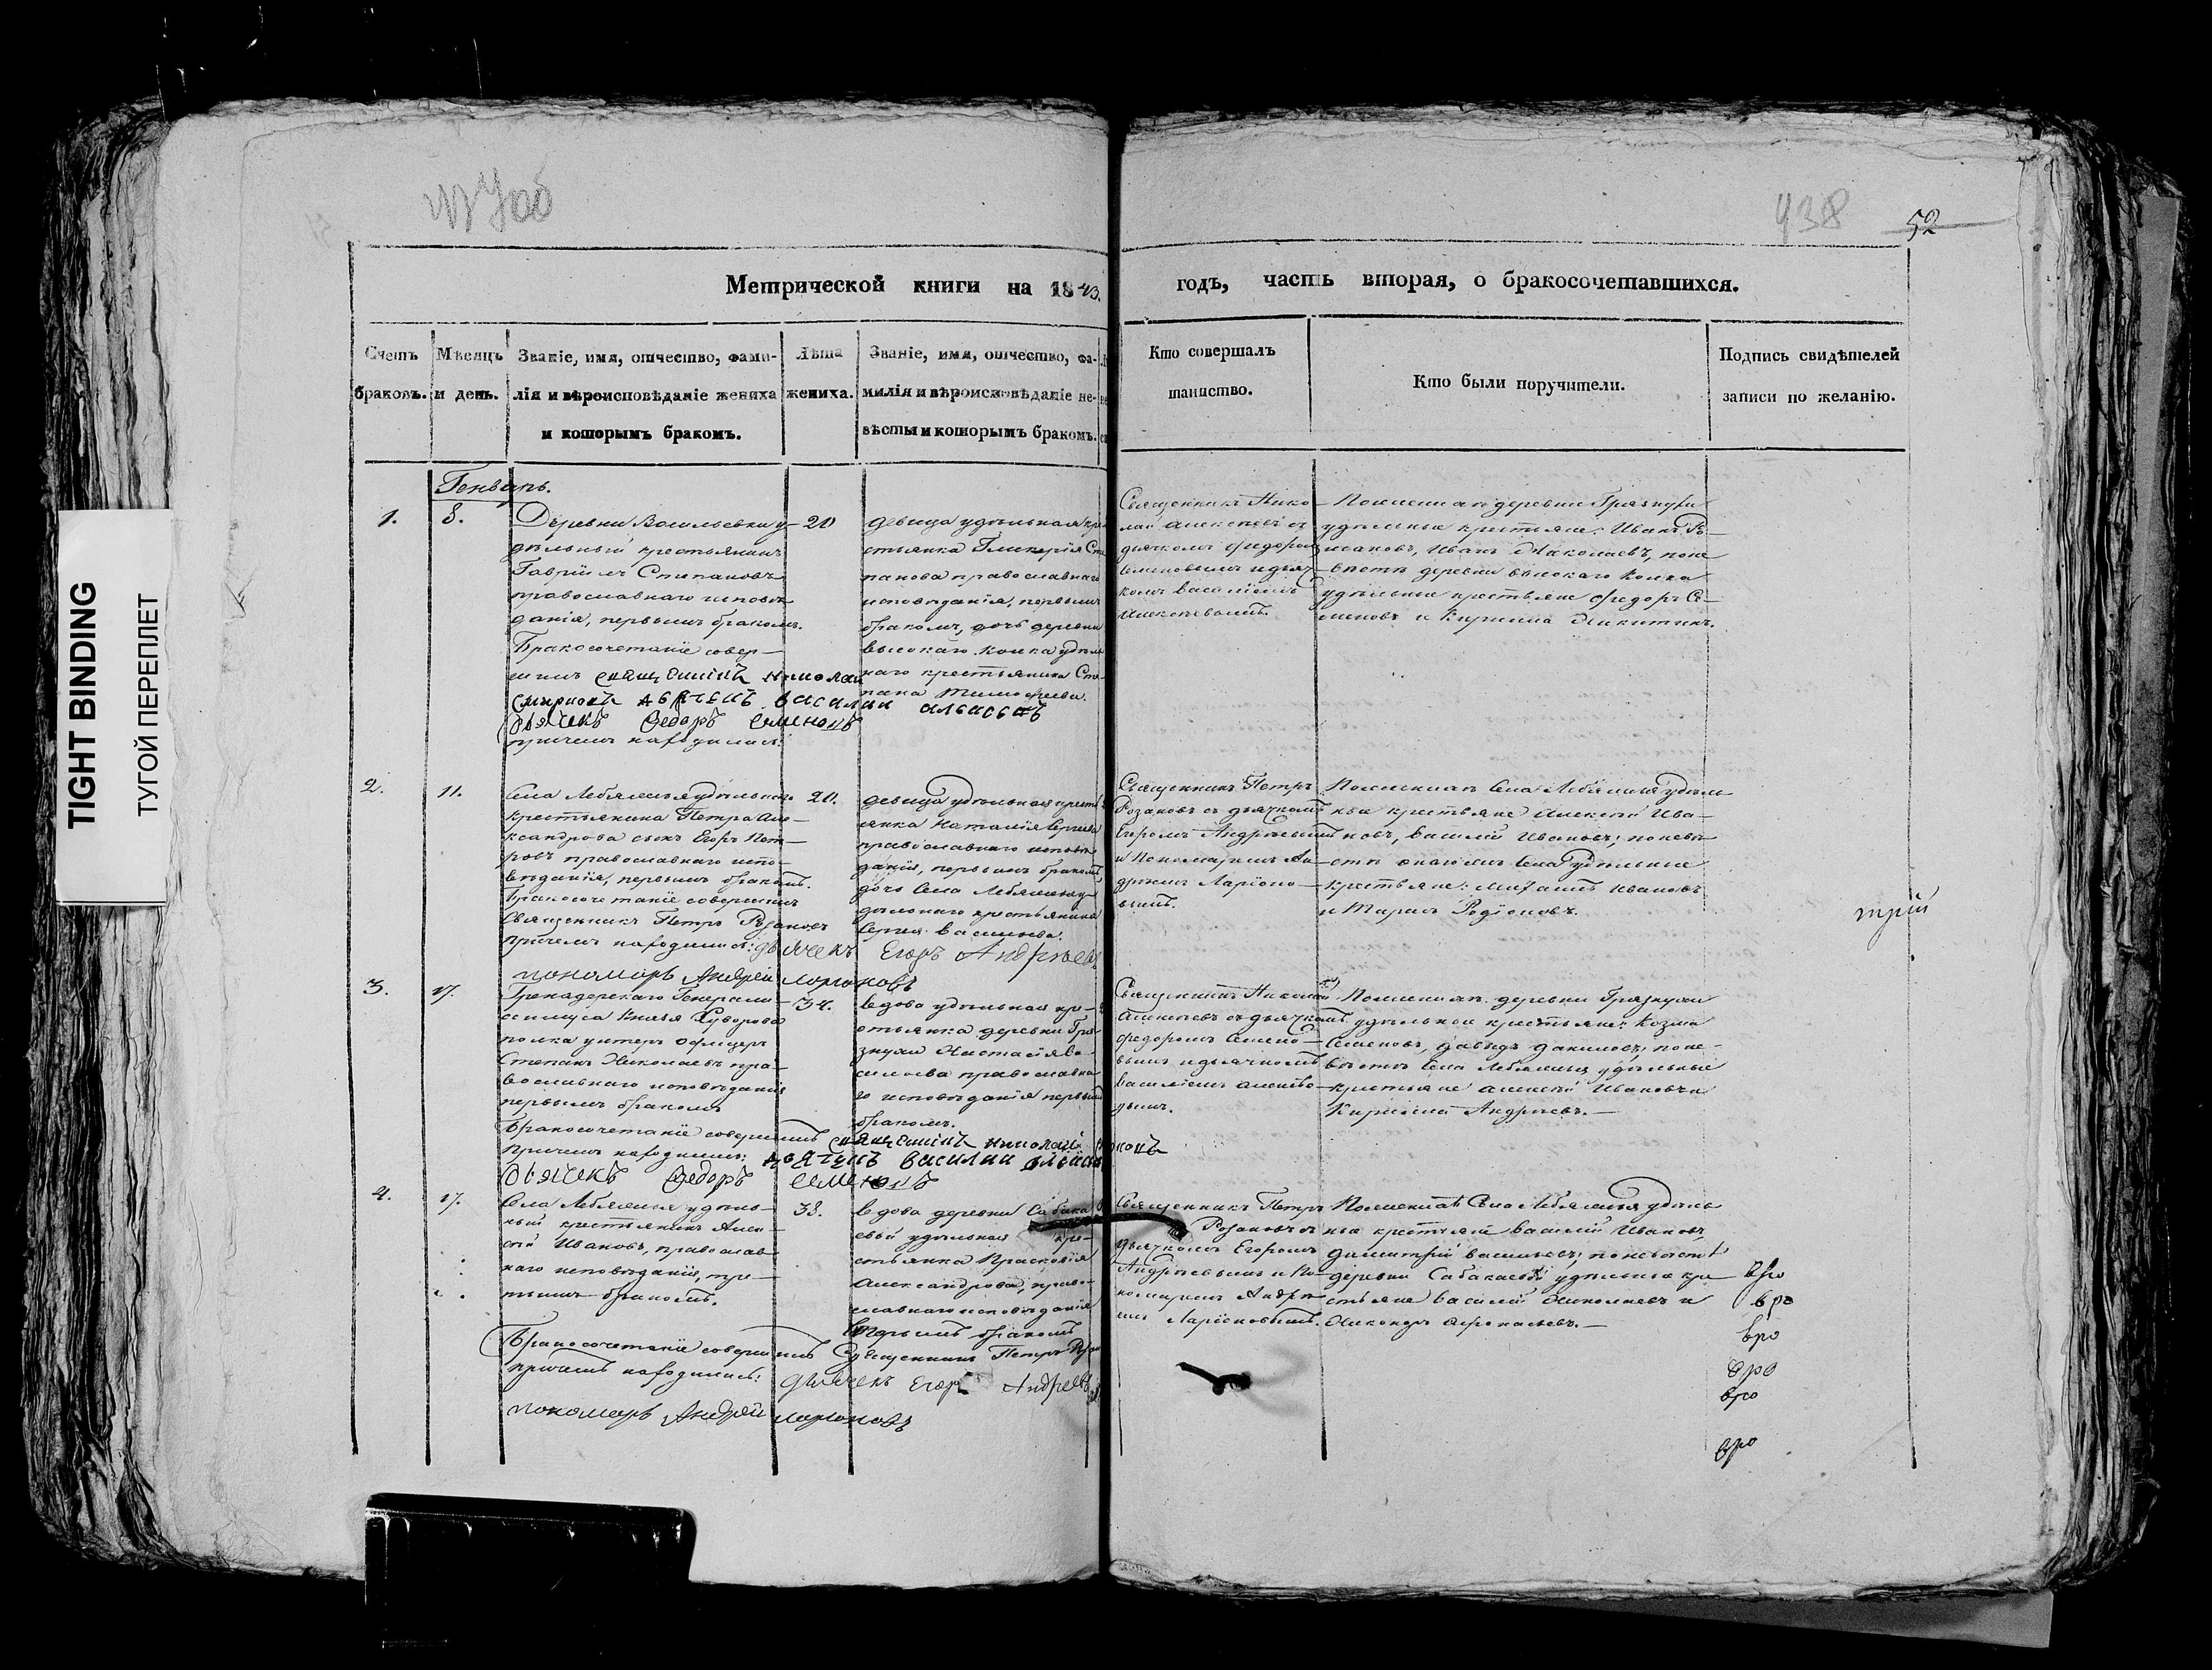 TIGHT BINDING
ТУГОЙ ПЕРЕПЛЕТ
438
52
Метрической книги на 1843.
годъ, часть вторая, о бракосочетавшихся.
Счетъ
браковъ.
Мѣсяцъ
и день.
Званіе, имя, отчество, фами-
лія и вѣроисповѣданіе жениха
и которымъ бракомъ.
Лѣта
жениха.
Званіе, имя, отчество, фа-
милія и вѣроисповѣданіе не-
вѣсты и которымъ бракомъ.
Кто совершалъ
таинство.
Кто были поручители.
Подпись свидѣтелей
записи по желанію.
Генварь.
1.
8.
Деревни Васильевки у-
дѣльный крестьянинъ
Гавріилъ Степановъ
православнаго исповѣ
данія, первымъ бракомъ.
Бракосочетаніе совер-
шилъ священникъ Николай
дьячекъ Василии
Дьячекъ Федоръ Семеновъ
причемъ находились:
20
девица удѣльная кре
стьянка Гликерія Сте
панова православнаго
исповѣданія, первымъ
бракомъ, дочь деревни
высокаго колка удѣль
наго крестьянина Сте
пана Тимофеева.
Священникъ Нико
лай Алексѣевъ съ
дьячкомъ Федоромъ
Семеновымъ и дьяч
комъ Василіемъ
Алексѣевымъ.
По женихѣ деревни Грязнухи
удѣльные крестьяне: Иванъ
Иванъ Николаевъ, поне
вѣстѣ деревни высокаго колка
удѣльные крестьяне Федоръ Се-
меновъ и Кирилла Никитинъ.
2.
11.
Села Лебяжья удѣльнаго
крестьянина Петра Але-
ксандрова сынъ Егоръ Пет-
ровъ православнаго испо-
вѣданія, первымъ бракомъ.
Бракосочетаніе совершилъ
Священникъ Петръ Розановъ
причемъ находились: дьячекъ Егоръ Андреевъ
пономарь Андрей Ларионовъ
20.
девица удѣльная кресть
янка Наталія Сергеева
православнаго исповѣ
данія, первымъ бракомъ,
дочь Села Лебяжья у-
дѣльнаго крестьянина
Сергея Васильева.
Священникъ Петръ
Розановъ съ дьячкомъ
Егоромъ Андреевымъ
и Пономаремъ Ан-
дреемъ Ларіоно-
вымъ.
По женихѣ Села Лебяжья удѣль
ные крестьяне Алексѣй Ива-
новъ, Василій Ивановъ; по невѣ
стѣ онагожъ Села удѣльные
крестьяне: Михаилъ Ивановъ
и Тарасъ Родіоновъ.
трій
3.
17.
Гренадерскаго Генерали-
симуса Князя Суворова
полка унтеръ офицеръ
Степанъ Николаевъ пра-
вославнаго исповѣданія
первымъ бракомъ
Бракосочетаніе совершилъ священникъ Николай
причемъ находились: дьячекъ Василии
Дьячекъ Федоръ Семеновъ
34.
вдова удѣльная кре-
стьянка деревни Гря
знухи Настасія Ва-
сильева православна
го исповѣданія первымъ
бракомъ.
Священникъ Николай
Алексѣевъ съ дьячкомъ
Федоромъ Семено-
вымъ и дьячкомъ
Василіемъ Алексѣе-
вымъ.
По женихѣ деревни Грязнухи
удѣльные крестьяне: Козма
Семеновъ, Давыдъ Даниловъ; поне-
вѣстѣ Села Лебяжья удѣльные
крестьяне Алексѣй Ивановъ и
Кирилла Андреевъ.
4.
17.
Села Лебяжья удѣль-
ный крестьянинъ Алек-
сѣй Ивановъ, православ
наго исповѣданія, тре-
тьимъ бракомъ.
Бракосочетаніе совершилъ Священникъ Петръ
причемъ находились: дьячекъ Егоръ Андреевъ
пономарь Андрей Ларионовъ
38.
вдова деревни Сабака
евой удѣльная кре-
стьянка Прасковія
Александрова, право-
славнаго исповѣданія
вторымъ бракомъ
Священникъ Петръ
Розановъ съ
дьячкомъ Егоромъ
Андреевымъ и По-
номаремъ Андре
емъ Ларіоновымъ.
По женихѣ Села Лебяжья удѣль
ные крестьяне Василій Ивановъ,
Димитрій Васильевъ; по невѣстѣ
деревни Сабакаевой удѣльные кре
стьяне Василій Николаевъ и
Никаноръ Афанасьевъ.